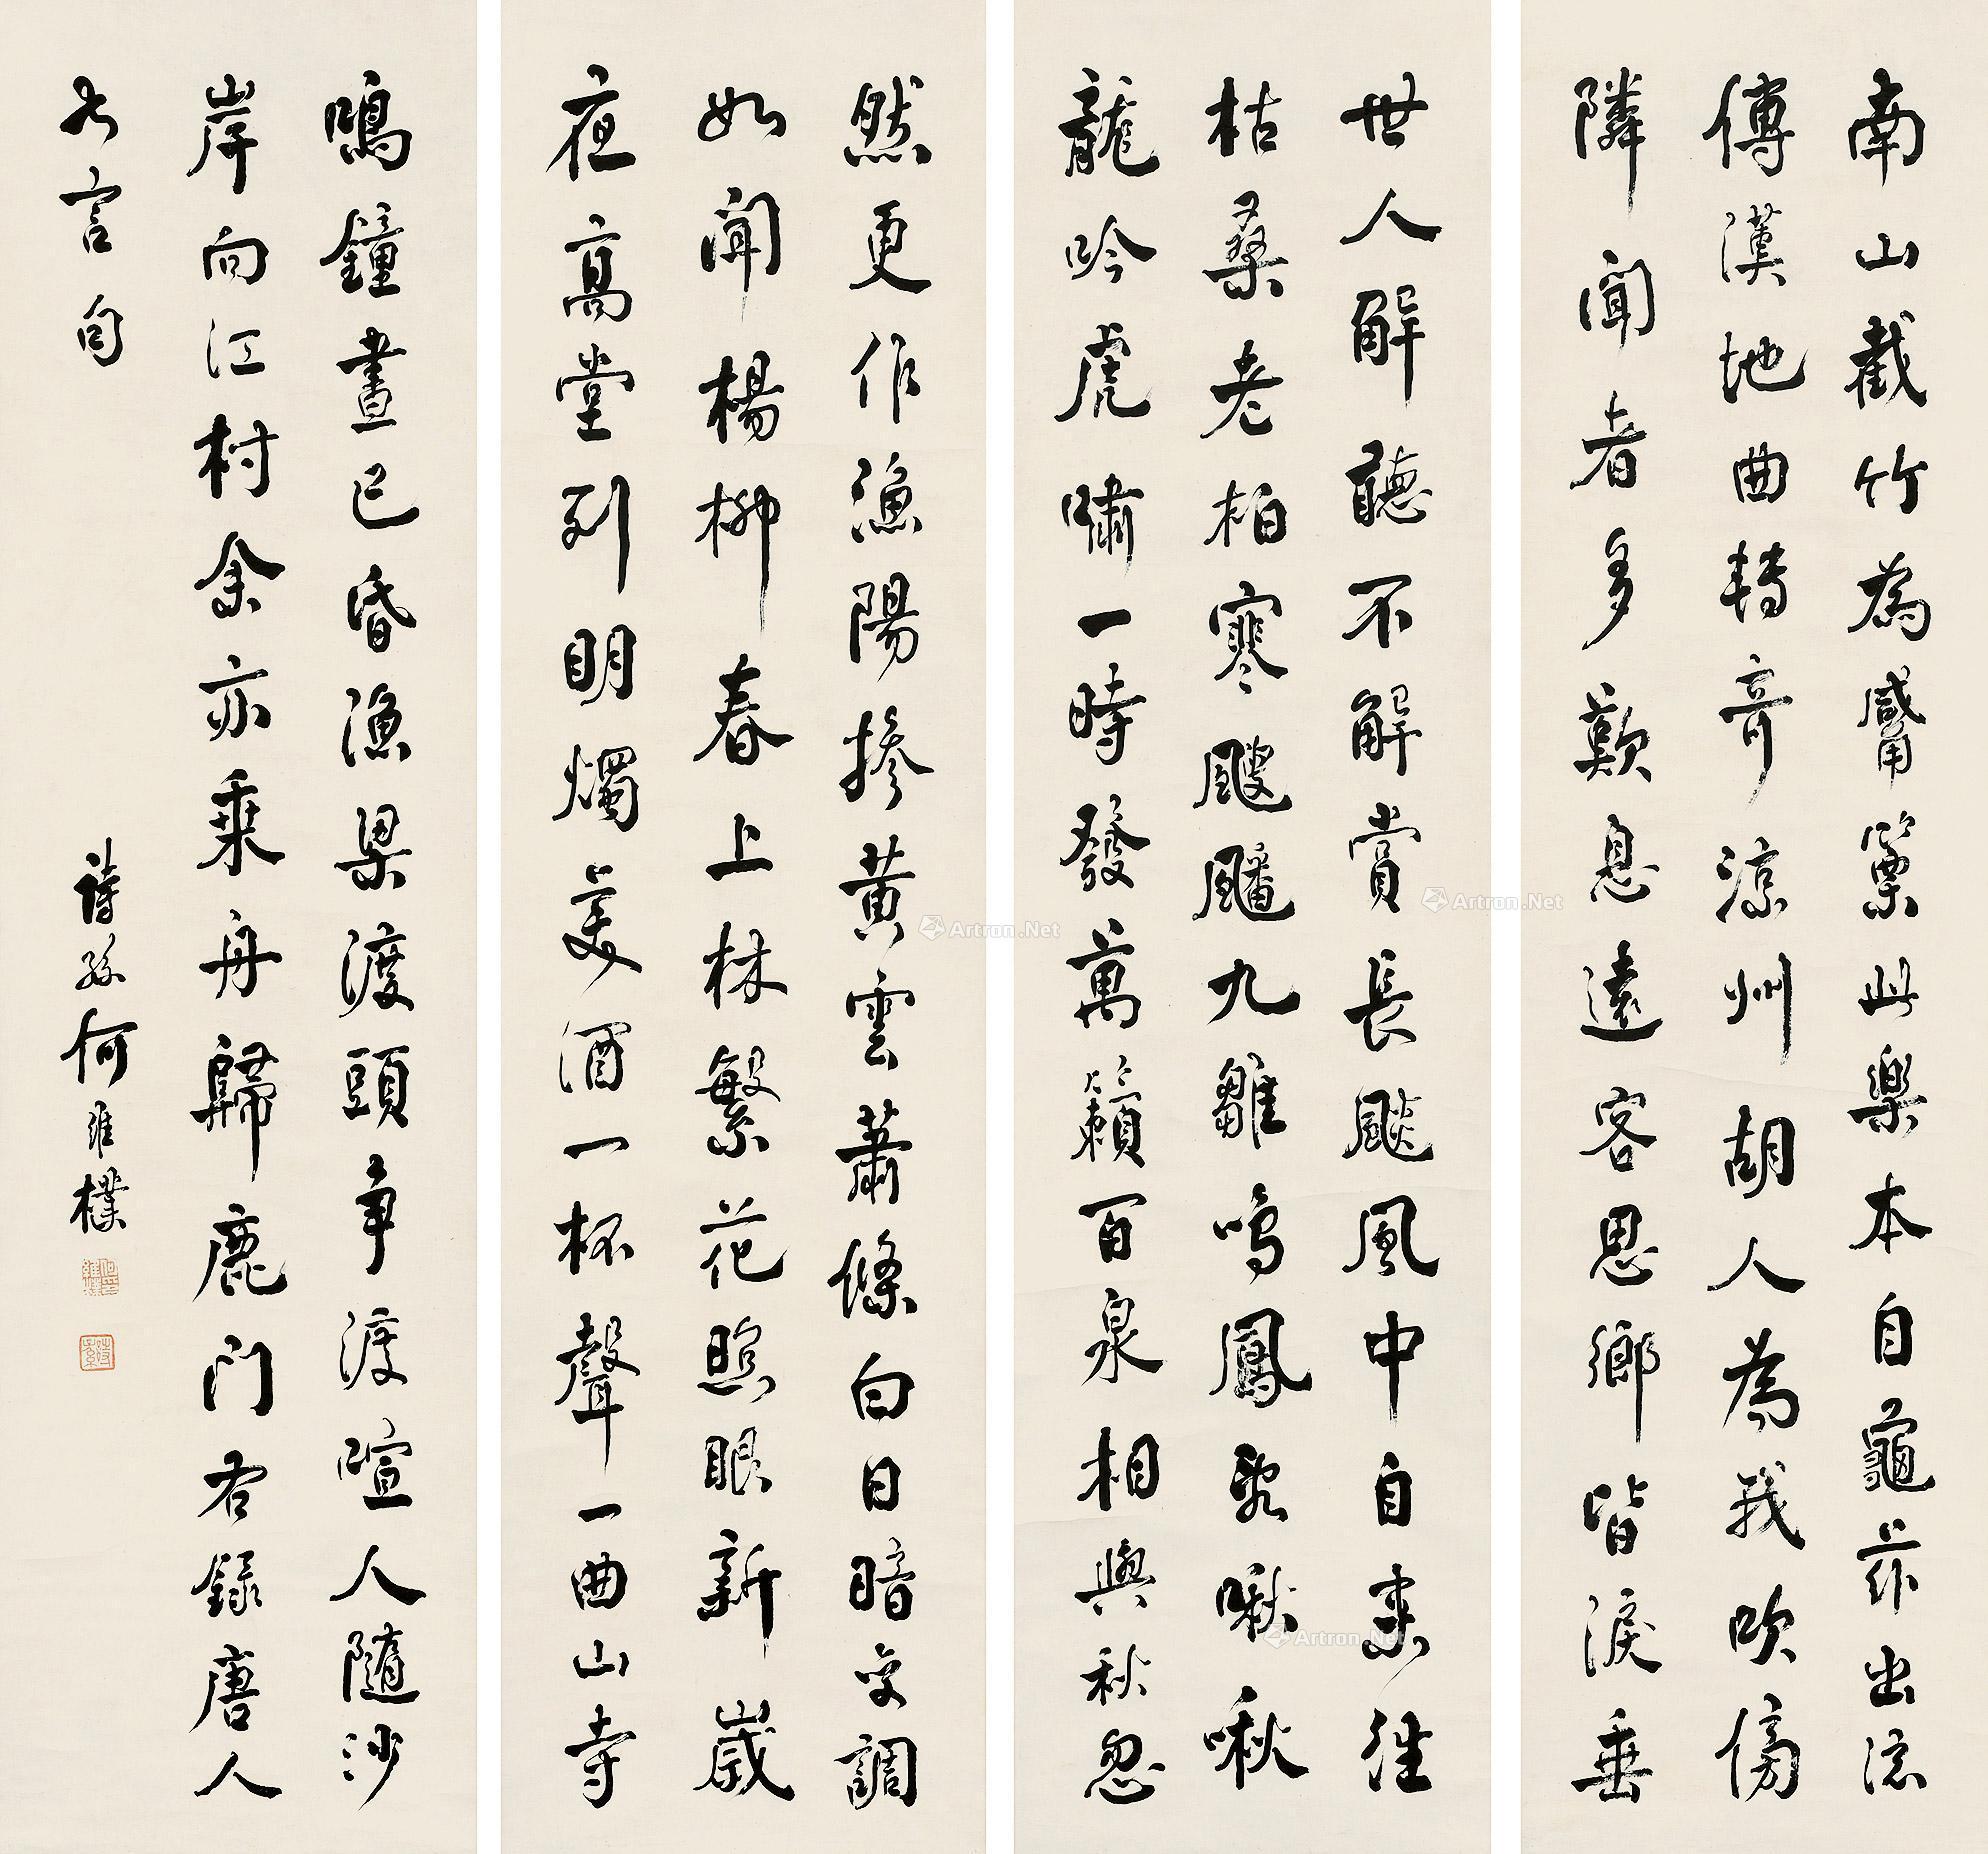 南山截竹為觱篥此樂本自龜茲出流
傳漢地曲轉奇涼州胡人為我吹傍
隣聞者多歎息遠客思鄉皆淚垂
世人解聽不解賞長飈風中自來往
枯桑老柏寒颼飀九雛鳴鳳亂啾啾
龍吟虎嘯一時發萬籟百泉相與秋忽
然更作漁陽摻黃雲蕭條白日暗變調
如聞楊柳春上林繁花照眼新歲
夜高堂列明燭美酒一杯聲一曲山寺
鳴鐘晝已昏漁梁渡頭爭渡喧人隨沙
岸向江村余亦乘舟歸鹿門右錄唐人
言句
詩孫何維樸
詩孫
Artron.Net
Artron.Net
Artron.Net